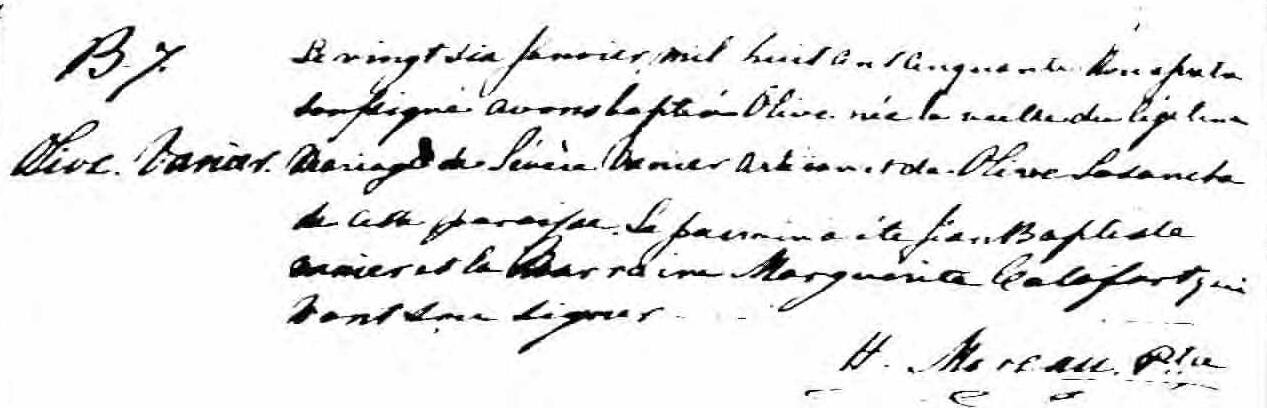 B. 7.
Olive. Vanier.
Le vingt six Janvier, mil huit cent cinquante Nous prêtre
soussigné avons baptisé Olive née la veille du légitime
Mariage de Sévère Vanier Artisan et de Olive Ladancha
de cette paroisse. Le parrain a été Jean Baptiste
vanier et la Marraine Marguerite Calafart qui
n'ont su signer
H. Moreau. Ptre